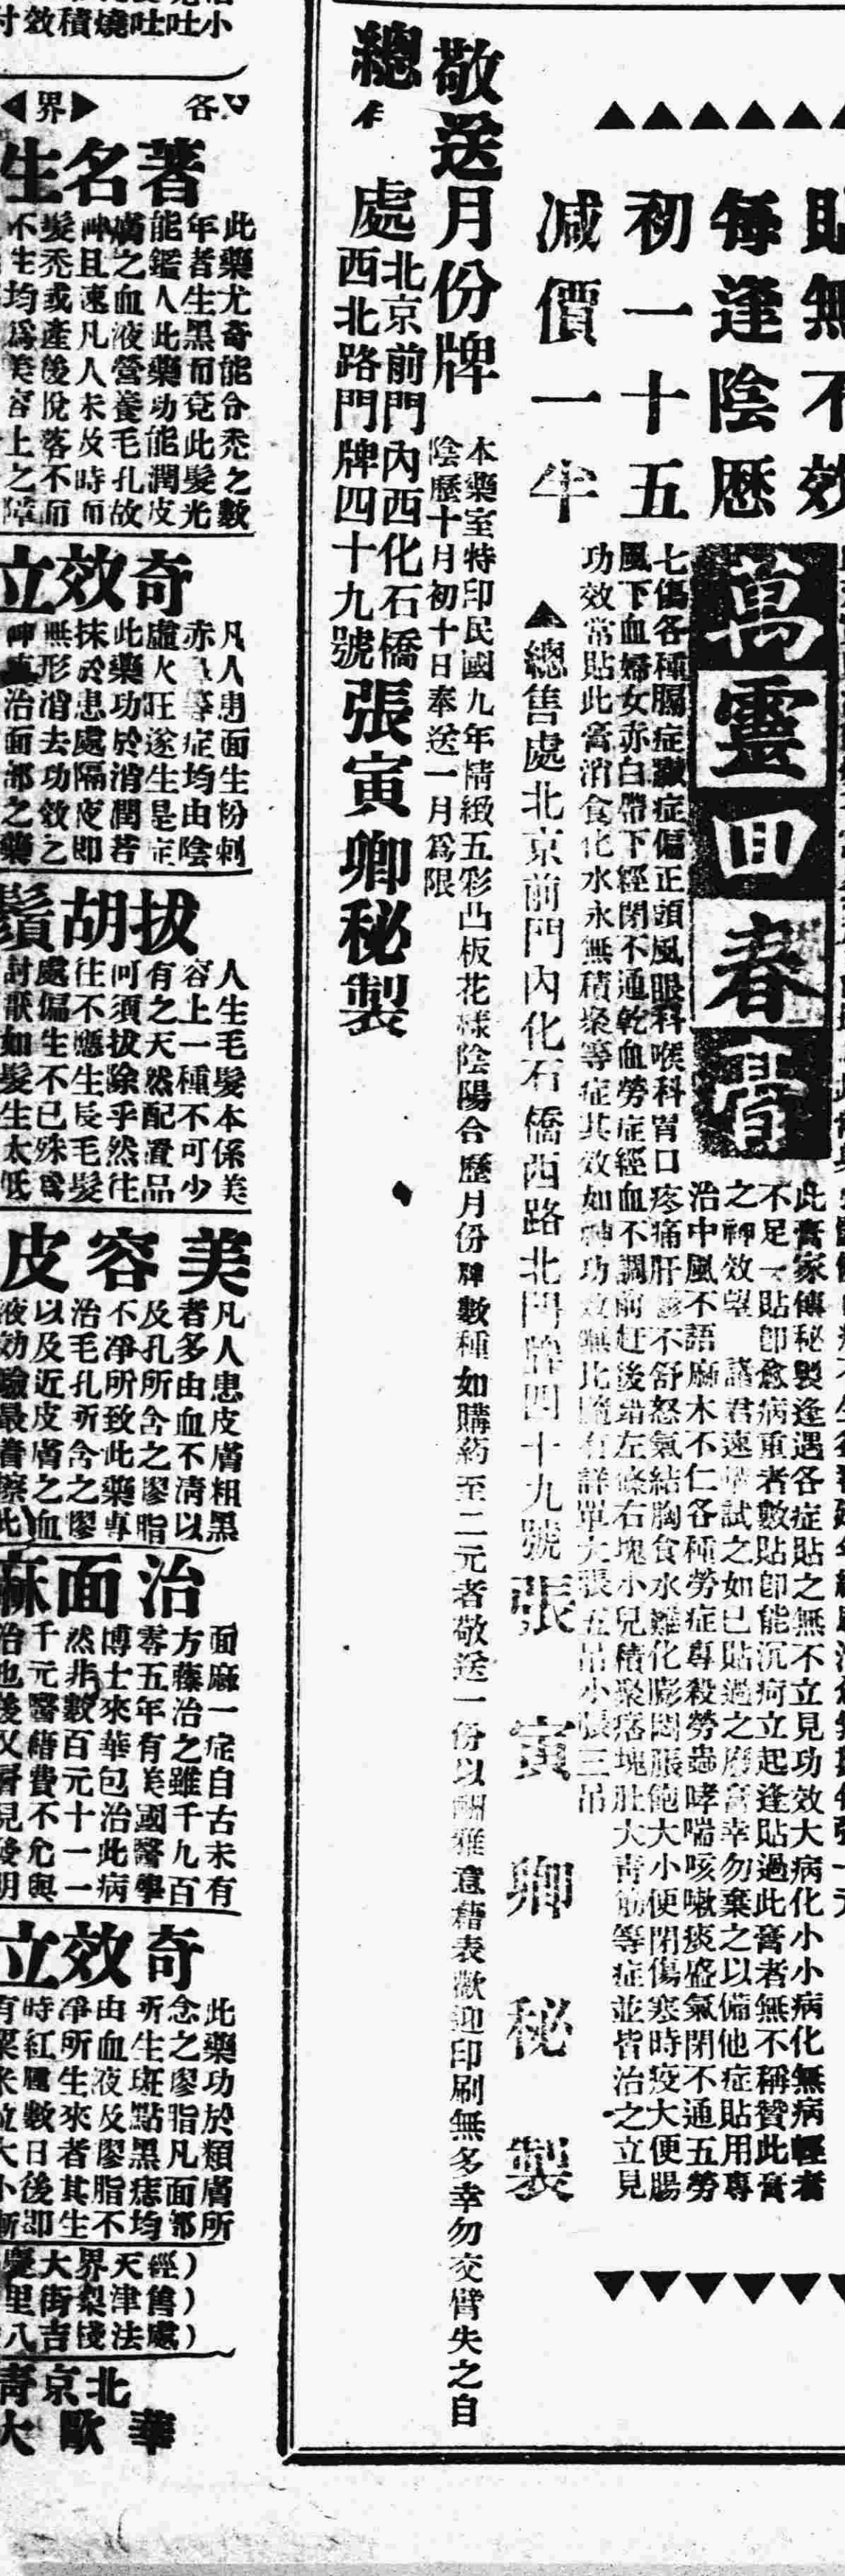 貼無不效
每逢陰厯
初一十五
减價一半
萬靈回春膏
此膏家傳秘製逢遇各症貼之無不立見功效大病化小小病化無病輕者
不足一貼卽愈病重者數貼卽能沉疴立起逢貼過此膏者無不稱贊此膏
之神效望 諸君速 試之如已貼過之 膏幸勿棄之以備他症貼用專
治中風不語麻木不仁各種勞症專殺勞蟲哮喘咳嗽痰盛氣閉不通五勞
七傷各種腸症 症偏正頭風眼科喉科胃口疼痛肝 不舒怒氣結胸食水難化膨悶脹飽大小便閉傷寒時疫大便腸
風下血婦女赤白帶下經閉不通乾血勞症經血不調前赶後錯左 右塊小兒積聚痞塊肚大青筋等症並皆治之立見
功效常貼此膏消食化水永無積聚等症其效如神功效無比隨有詳單大張五吊小張三吊
▲總售處北京前門內化石橋西路北門牌四十九號張寅卿秘製
敬送月份牌
本藥室特印民國九年精緻五彩凸板花樣陰陽合歷月份牌數種如購葯至二元者敬送一份以酬雅意藉表歡迎印刷無多幸勿交臂失之自
陰歷十月初十日奉送一月爲限
總 處
北京前門內西化石橋
西北路門牌四十九號
張寅卿秘製
小
吐
吐
燒
積
效
各
界
著名生
此藥尤奇能令禿之數
年者生黑而竟此髮光
能鑑人此藥功能潤皮
膚之血液營養毛孔故
神且速凡人未及時而
髮禿或產後脫落不而
不生均爲美容上之障
奇效立
凡人患面生粉刺
赤 等症均由陰
虛火旺遂生是症
此藥功於消潤若
抹於患處隔夜卽
無形消去功效之
神 治面部之藥
拔胡鬚
人生毛髮本係美
容上一種不可少
有之天然配置品
何須拔除乎然往
往不應生長毛髮
處偏生不已殊爲
討厭如髮生太低
美容皮
凡人患皮膚粗黑
者多由血不清以
及孔所含之膠脂
不凈所致此藥專
治毛孔所含之膠
以及近皮膚之血
液効驗最著擦此
治面麻
面麻一症自古未有
方藥治之雖千九百
零五年有美國醫學
博士來華包治此病
然非數百元十一一
千元醫藉費不允與
治也後又層見發明
奇效立
此藥功於類膚所
念之膠脂凡面部
所生斑點黑痣均
由血液及膠脂不
凈所生來者其生
時紅 數日後卽
有粟米粒大小漸
經售處
天津法
界梨棧
大街吉
慶里八
北京青
華歐大